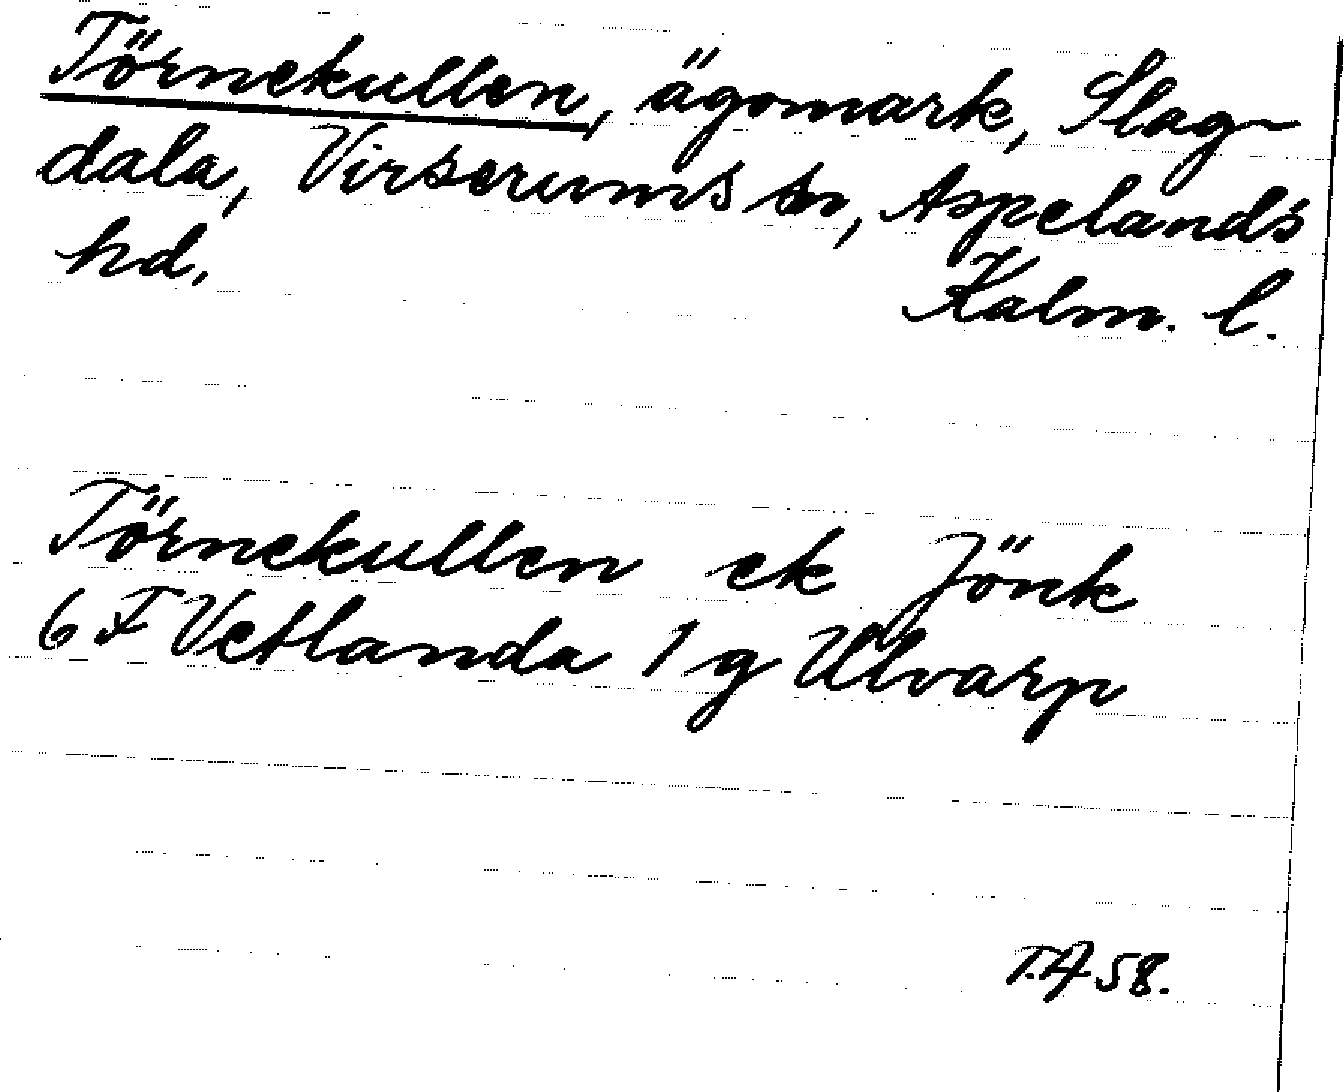 Törnekullen, ägomark, Slag-
dala, Virserums sn, Aspelands
hd.
Kalm. l.
Törnekullen ek Jönk
6 F Vetlanda 1 g Ulvarp
T.A 58.